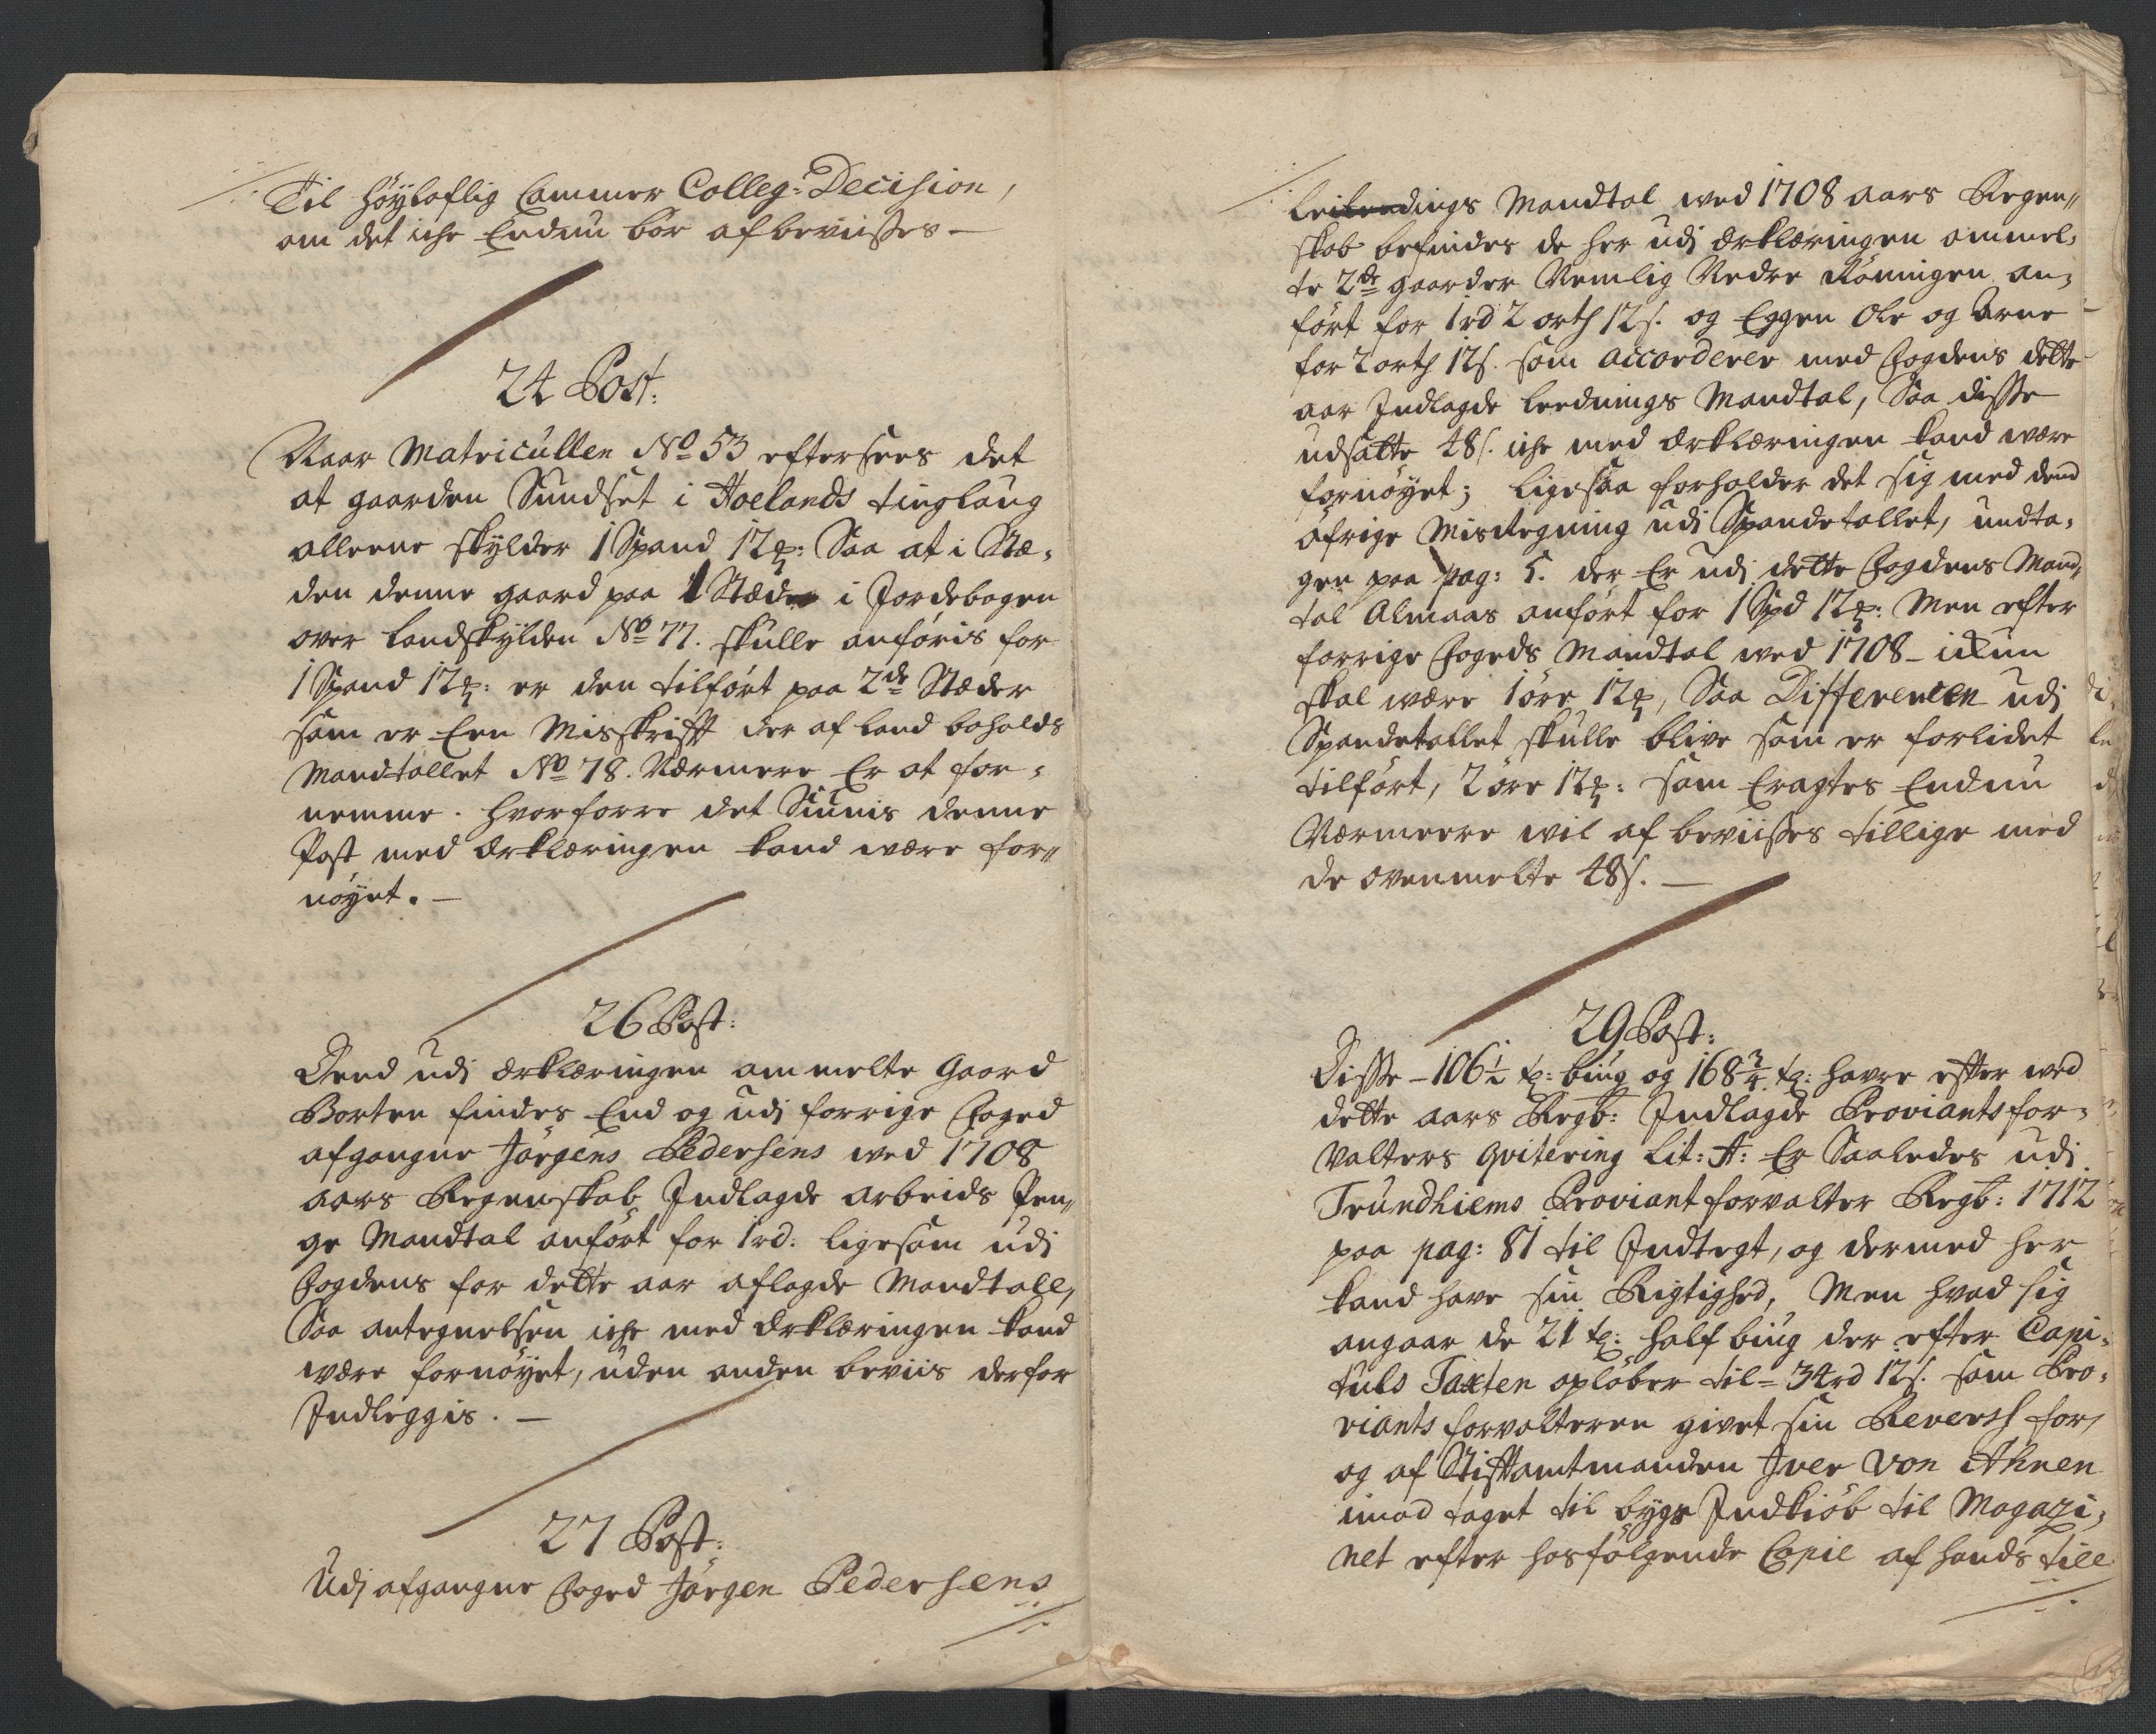 Til höÿloflig Cammer Colleg: Decision,
om det iche Endnu bör afbeviisses —
24 Post:
Naar Matricullen No 53 eftersees det
at gaarden Sundset i Hoelands tinglaug
alleene skÿlder 1 Spand 12 : Saa at i Stæ-
den denne gaard paa 1 Stæd i Jordebogen
over Landskÿlden No 77. skulle anföris for
1 Spand 12 : er den tilfört paa 2de Stæder
som er Een Misskrifft der af Land boholds
Mandtallet No 78. Nærmere Er at for-
nemme. hvorforre det Siunis denne
Post med Erklæringen kand være for-
nöÿet. —
26 Post:
Dend udj Erklæringen ommelte Gaard
Borten findes End og udj forrige Foged
afgangne Jörgens Pedersens ved 1708
aars Regenskab Indlagde Arbeids Pen-
ge Mandtal anfört for 1 rd: ligesom udj
Fogdens for dette aar aflagde Mandtall,
Saa antegnelsen iche med Erklæringen kand
være fornöÿet, uden anden beviis derfor
Indleggis. —
27 Post:
Udj afgangne Foged Jörgen Pedersens
Leilendings Mandtal ved 1708 aars Regen-
skab befindes de her udj Erklæringen ommel-
te 2de gaarder Nemlig Nedre Röningen an-
fört for 1 rd 2 orth 12 s. og Eggen Ole og Arne
for 2 orth 12 s. som accorderer med Fogdens dette
aar Indlagde Leednings Mandtal, Saa disse
udsatte 48 s. iche med Erklæringen kand være
fornöÿet; ligesaa forholder det sig med dend
öfrige Misregning udj Spandetallet, undta-
gen paa pag: 5. der Er udj dette Fogdens Mand-
tal Almaas anfört for 1 Spd 12 : Men efter
forrige Fogeds Mandtal ved 1708 – ickun
skal være 1 öre 12 , Saa Differencen udj
Spandetallet skulle blive som er forlidet
tilfört, 2 öre 12 : som Eragtes Endnu
Nærmeere vil afbeviisses tillige med
de ovenmelte 48 s. —
29 Post:
Disse – 106½ t: biug og 168¾ t: havre efter ved
dette aars Regb: Indlagde Proviantsfor-
valters qvitering Lit: A: Er Saaledes udj
Trundhiems Proviantforvalter Regb: 1712
paa pag: 81 til Indtegt, og dermed her
kand have sin Rigtighed, Men hvad sig
angaar de 21 t: half biug der efter Capi-
tuls Taxten oplöber til – 34 rd 12 s. som Pro-
viants forvalteren givet sin Reversh for,
og af Stiftamtmanden Iver Von Ahnen
imod taget til bÿgs Indkiöb til Magazi-
net efter hosfölgende Copie af hands till